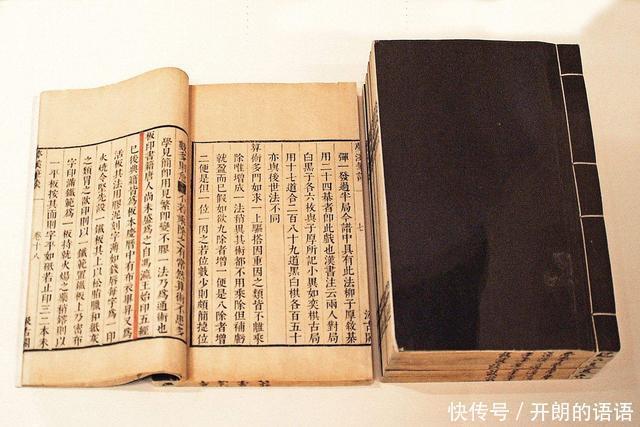 夢溪筆談
七
汲古閣
彈一發過半局今譜中具有此法柳子厚敘棊
用二十四棊者即此戲也漢書注云兩人對局
白黑棊各六枚與子厚所記小異如奕棋古局
用十七道合二百八十九道黑白棋各百五十
亦與後世法不同
算術多門如求一上驅搭因重因之類皆不離乘
除惟增成一法稍異其術都不用乘除但補虧
就盈而已假如欲九除者增一便是八除者增
二便是但一位一因之若位數少則頗簡捷位
數多則愈繁不若乘除之有常然算術不患多
學見簡即用見繁即變不膠一法乃爲通術也
板印書籍唐人尚未盛爲之自馮瀛王始印五經
已後典籍皆爲板本慶曆中有布衣畢昇又爲
活板其法用膠泥刻字薄如錢唇每字爲一印
火燒令堅先設一鐵板其上以松脂臘和紙灰
之類冒之欲印則以一鐵範置鐵板上乃密布
字印滿鐵範爲一板持就火煬之藥稍鎔則以
一平板按其面則字平如砥若止印二三本未
夢溪筆談
卷十八
汲古閣
快传号／开朗的语语